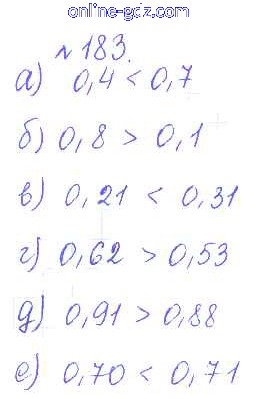 online-gdz.com
№183.
а) 0,4 < 0,7
б) 0,8 > 0,1
в) 0,21 < 0,31
г) 0,62 > 0,53
д) 0,91 > 0,88
е) 0,70 < 0,71